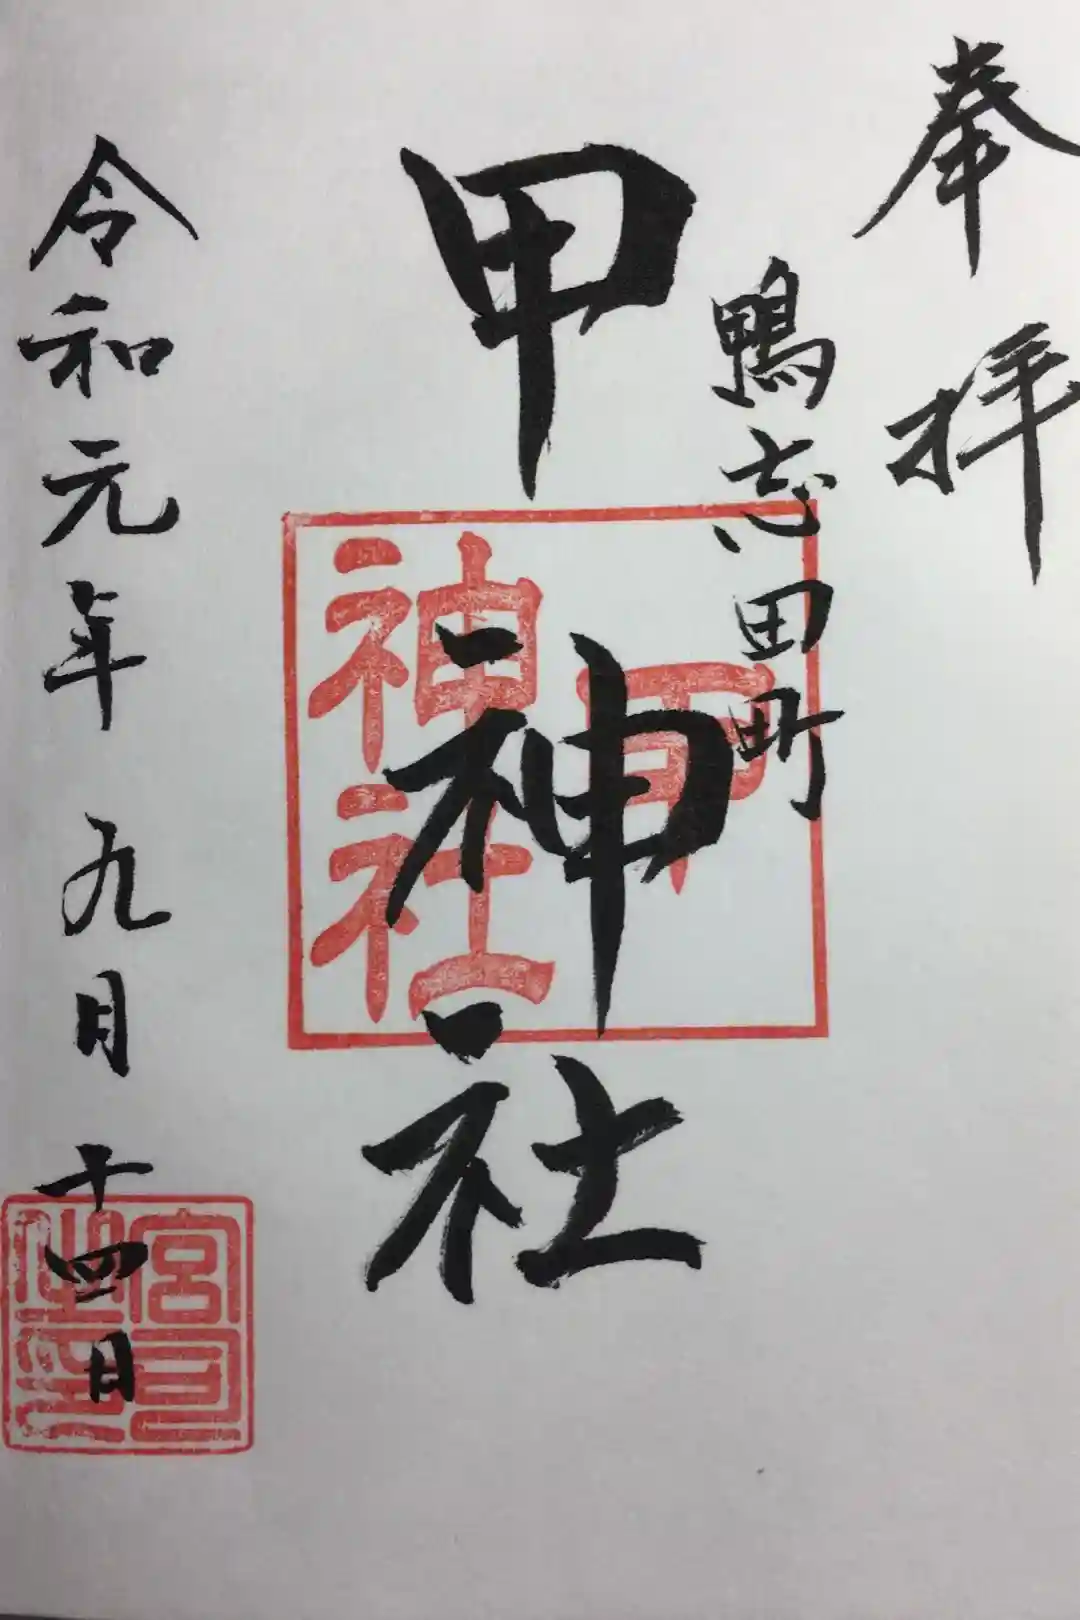 奉拝
鴨志田町
甲神社
甲
神社
令和元年 九月 十四日
宮司
之印